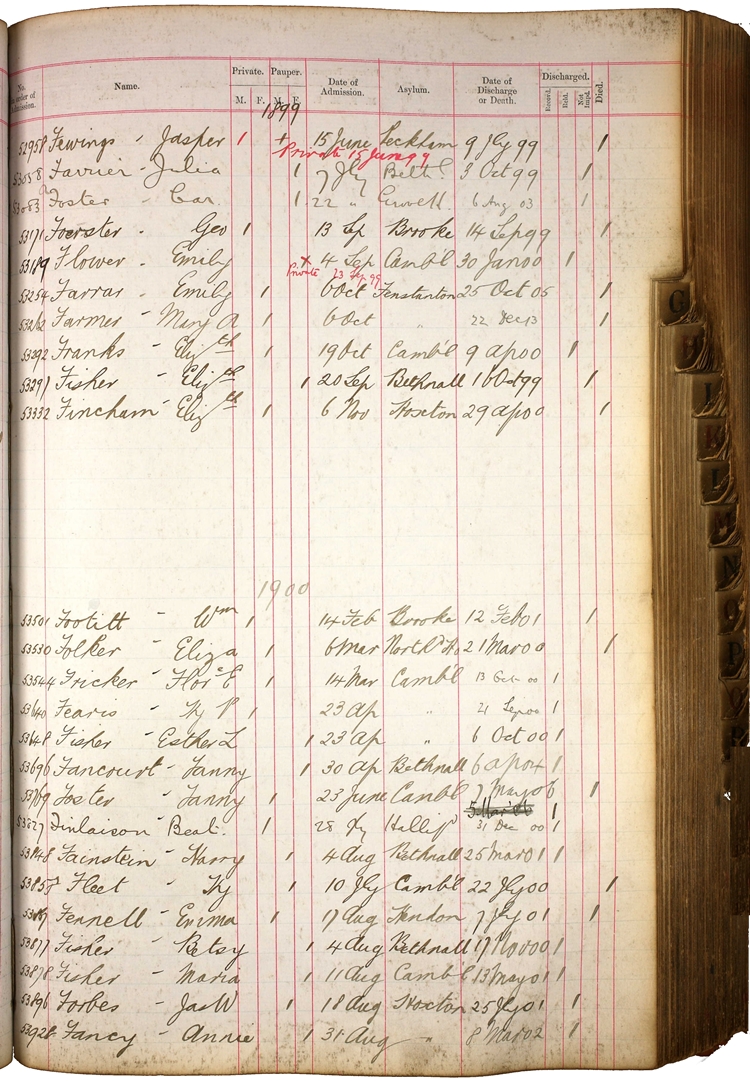 No. in order of Admission. Name. Private. M. F. Pauper. M. F. Date of Admission. Asylum. Date of Discharge or Death. Discharged. Recovd. Reld. Not Impd. Died.
1899
52958 Fewings - Jasper 1 + 15 June Peckham 9 Jly 99 1
Private 15 June 99
53058 Farrier - Julia 1 7 Jly Beth 3 Oct 99 1
53083 Foster - Car. 1 22 " 6 Aug 03 1
53171 Foerster - Geo 1 13 Sep Brooke 14 Sep 99 1
53189 Flower - Emily x 4 Sep Camb'l 30 Jan 00 1
Private 23 Sep 99
53254 Farrar - Emily 1 6 Oct Fenstanton 25 Oct 05 1
53262 Farmer - Mary A 1 6 Oct " 22 Dec 13 1
53292 Franks - Elizth 1 19 Oct Camb'l 9 Ap 00 1
53291 Fisher - Elizth 1 20 Sep Bethnall 16 Oct 99 1
53332 Fincham - Elizth 1 6 Nov Hoxton 29 Ap 00 1
1900
53501 Footitt - Wm 1 14 Feb Brooke 12 Feb 01 1
53530 Folker - Eliza 1 6 Mar North'd Ho 21 Mar 00 1
53544 Fricker - Flor'e E 1 14 Mar Camb'l 13 Oct 00 1
53640 Fearis - Hy P 1 23 Ap " 21 Sep 00 1
53648 Fisher - Esther L 1 23 Ap " 6 Oct 00 1
53696 Fancourt - Fanny 1 30 Ap Bethnall 6 Ap 04 1
53769 Foster - Fanny 1 23 June Camb'l 7 May 06 1
5 Mar 06 1
53827 Finlaison - Beat. 1 28 Jy Hallif'd 31 Dec 00 1
53848 Fainstein - Harry 1 4 Aug Bethnall 25 Mar 01 1
53858 Fleet - Hy 1 10 Jly Camb'l 22 Jly 00 1
Fennell - Emma 1 17 Aug Hendon 7 Jly 01 1
53877 Fisher - Betsy 1 4 Aug Bethnall 17 Nov 00 1
53878 Fisher - Maria 1 11 Aug Camb'l 13 May 01 1
53896 Forbes - Jas W 1 18 Aug Hoxton 25 Jly 01 1
53928 Fancy - Annie 1 31 Aug " 8 Mar 02 1
G
H
I
K
L
M
N
O
P